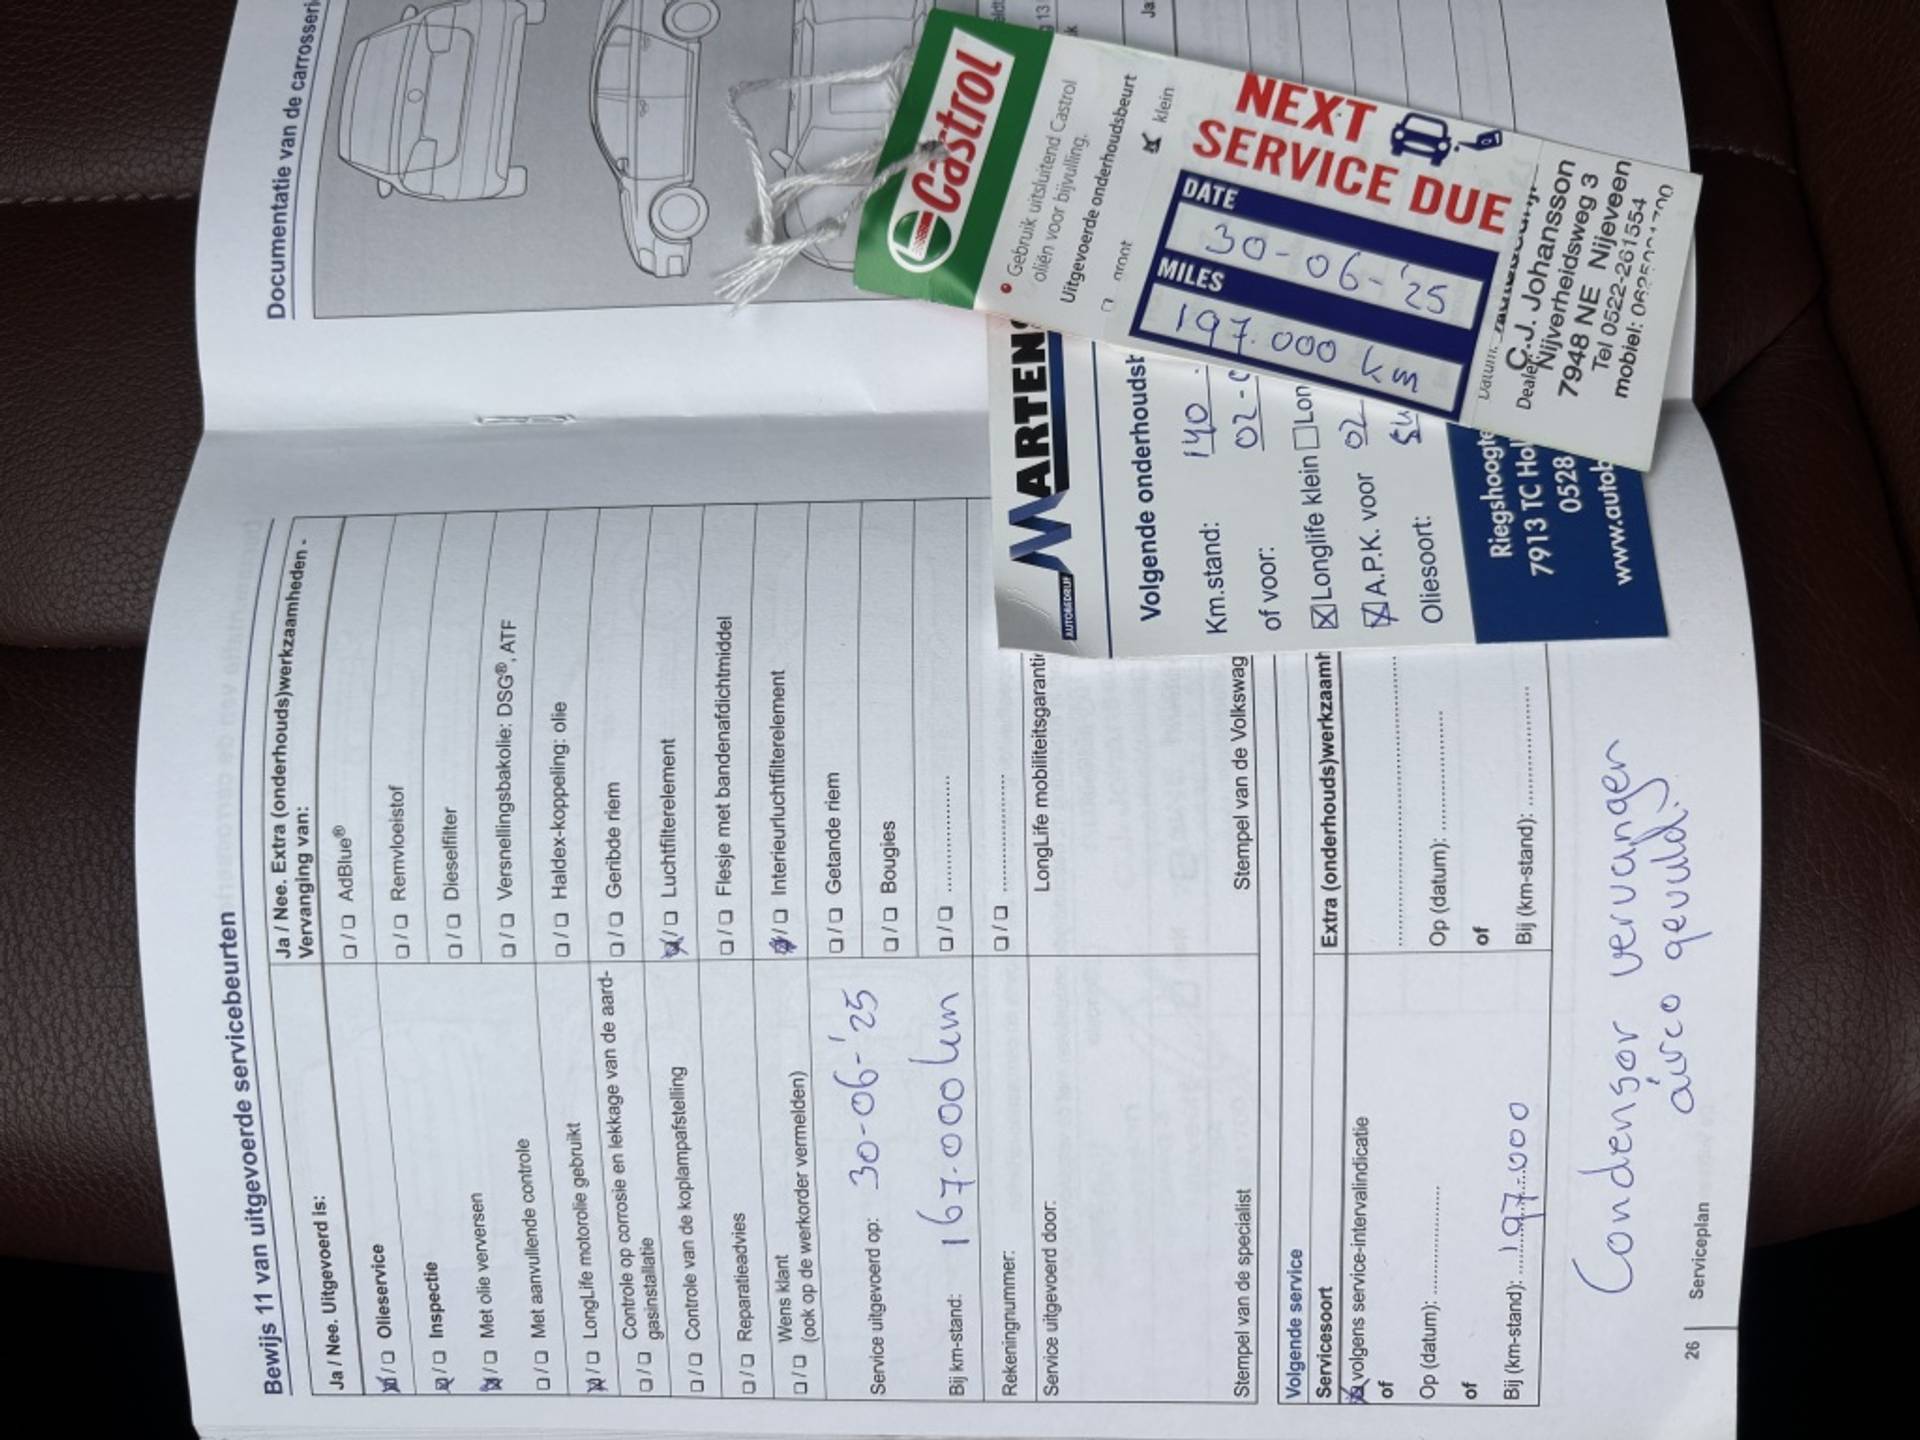 Bewijs 11 van uitgevoerde servicebeurten
Ja / Nee. Uitgevoerd is:
Olieservice
Inspectie
Met olie verversen
Met aanvullende controle
LongLife motorolie gebruikt
Controle op corrosie en lekkage van de aard-
gasinstallatie
Controle van de koplampafstelling
Reparatieadvies
Wens klant
(ook op de werkorder vermelden)
Service uitgevoerd op: 30-06-'25
Bij km-stand: 167.000 km
Rekeningnummer:
Service uitgevoerd door:
Stempel van de specialist
Ja / Nee. Extra (onderhouds)werkzaamheden -
Vervanging van:
AdBlue®
Remvloeistof
Dieselfilter
Versnellingsbakolie: DSG®, ATF
Haldex-koppeling: olie
Geribde riem
Luchtfilterelement
Flesje met bandenafdichtmiddel
Interieurluchtfilterelement
Getande riem
Bougies
LongLife mobiliteitsgarantie
Stempel van de Volkswag
Volgende service
Servicesoort
volgens service-intervalindicatie
of
Op (datum):
of
Bij (km-stand): 197.000
Extra (onderhouds)werkzaamh
Op (datum):
of
Bij (km-stand):
Condensor vervangen
airco gevuld!
26
Serviceplan
Documentatie van de carrosseri
MARTENS
AUTOBEDRIJF
Volgende onderhoudsb
Km.stand: 140
of voor: 02-0
Longlife klein Lon
A.P.K. voor 02
Oliesoort:
Riegshoogte
7913 TC Hol
0528
www.autob
Castrol
• Gebruik uitsluitend Castrol
oliën voor bijvulling.
Uitgevoerde onderhoudsbeurt
groot klein
NEXT
SERVICE DUE
DATE
30-06-'25
MILES
197.000 km
Datum:
Dealer:
C.J. Johansson
Nijverheidsweg 3
7948 NE Nijeveen
Tel 0522-261554
mobiel: